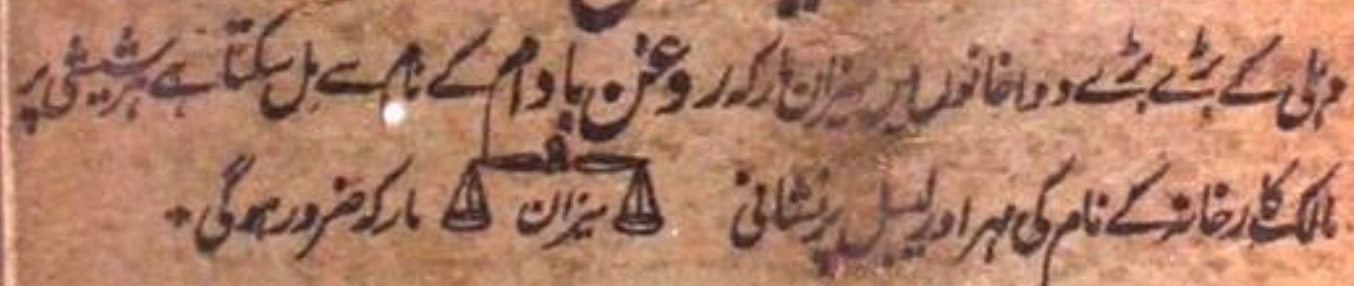 دہلی کے بڑے بڑے دواخانوں میں میزان مارکہ روغن بادام کے نام سے مل سکتا ہے ہر شیشی پر
مالک کارخانہ کے نام کی مہر اور لیبل پر نشانی میزان مارکہ ضرور ہوگی۔